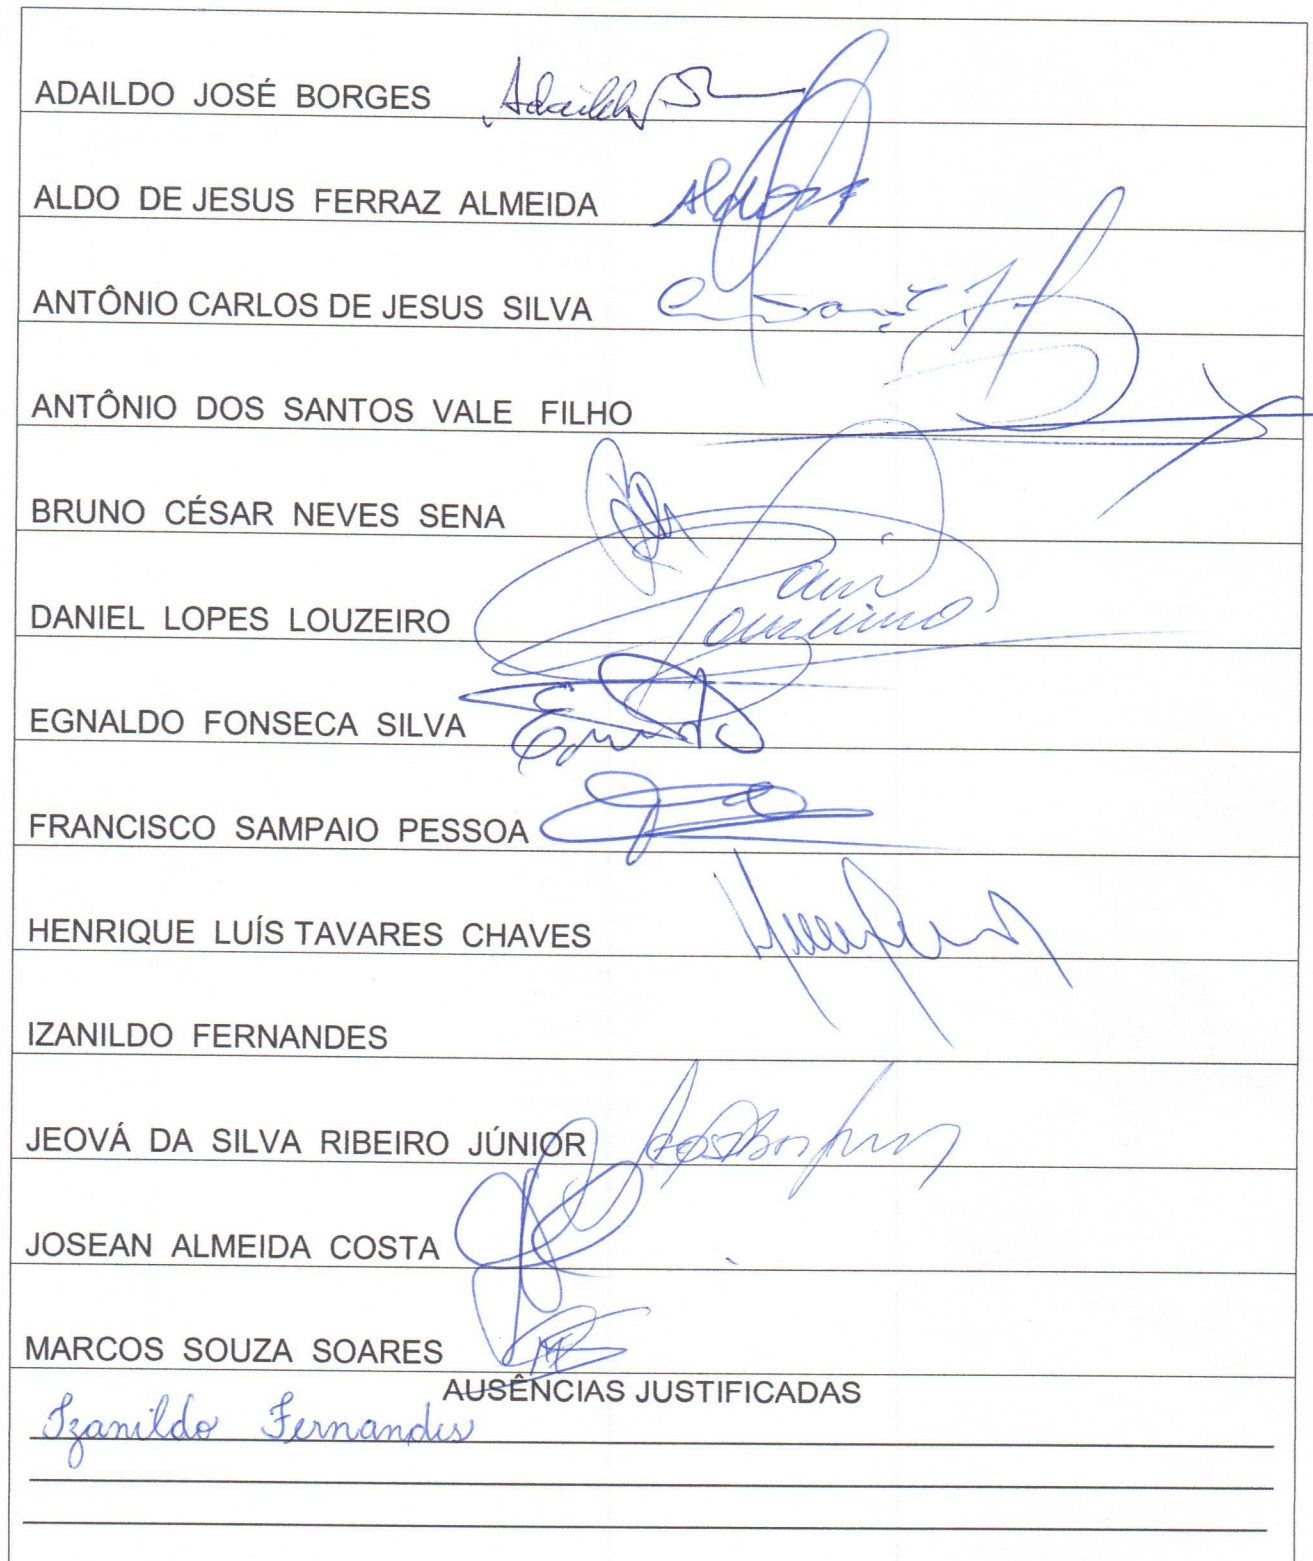 ADAILDO JOSÉ BORGES Adaildo
ALDO DE JESUS FERRAZ ALMEIDA Aldo
ANTÔNIO CARLOS DE JESUS SILVA
ANTÔNIO DOS SANTOS VALE FILHO
BRUNO CÉSAR NEVES SENA
DANIEL LOPES LOUZEIRO
EGNALDO FONSECA SILVA
FRANCISCO SAMPAIO PESSOA
HENRIQUE LUÍS TAVARES CHAVES
IZANILDO FERNANDES
JEOVÁ DA SILVA RIBEIRO JÚNIOR
JOSEAN ALMEIDA COSTA
MARCOS SOUZA SOARES
AUSÊNCIAS JUSTIFICADAS
Izanildo Fernandes